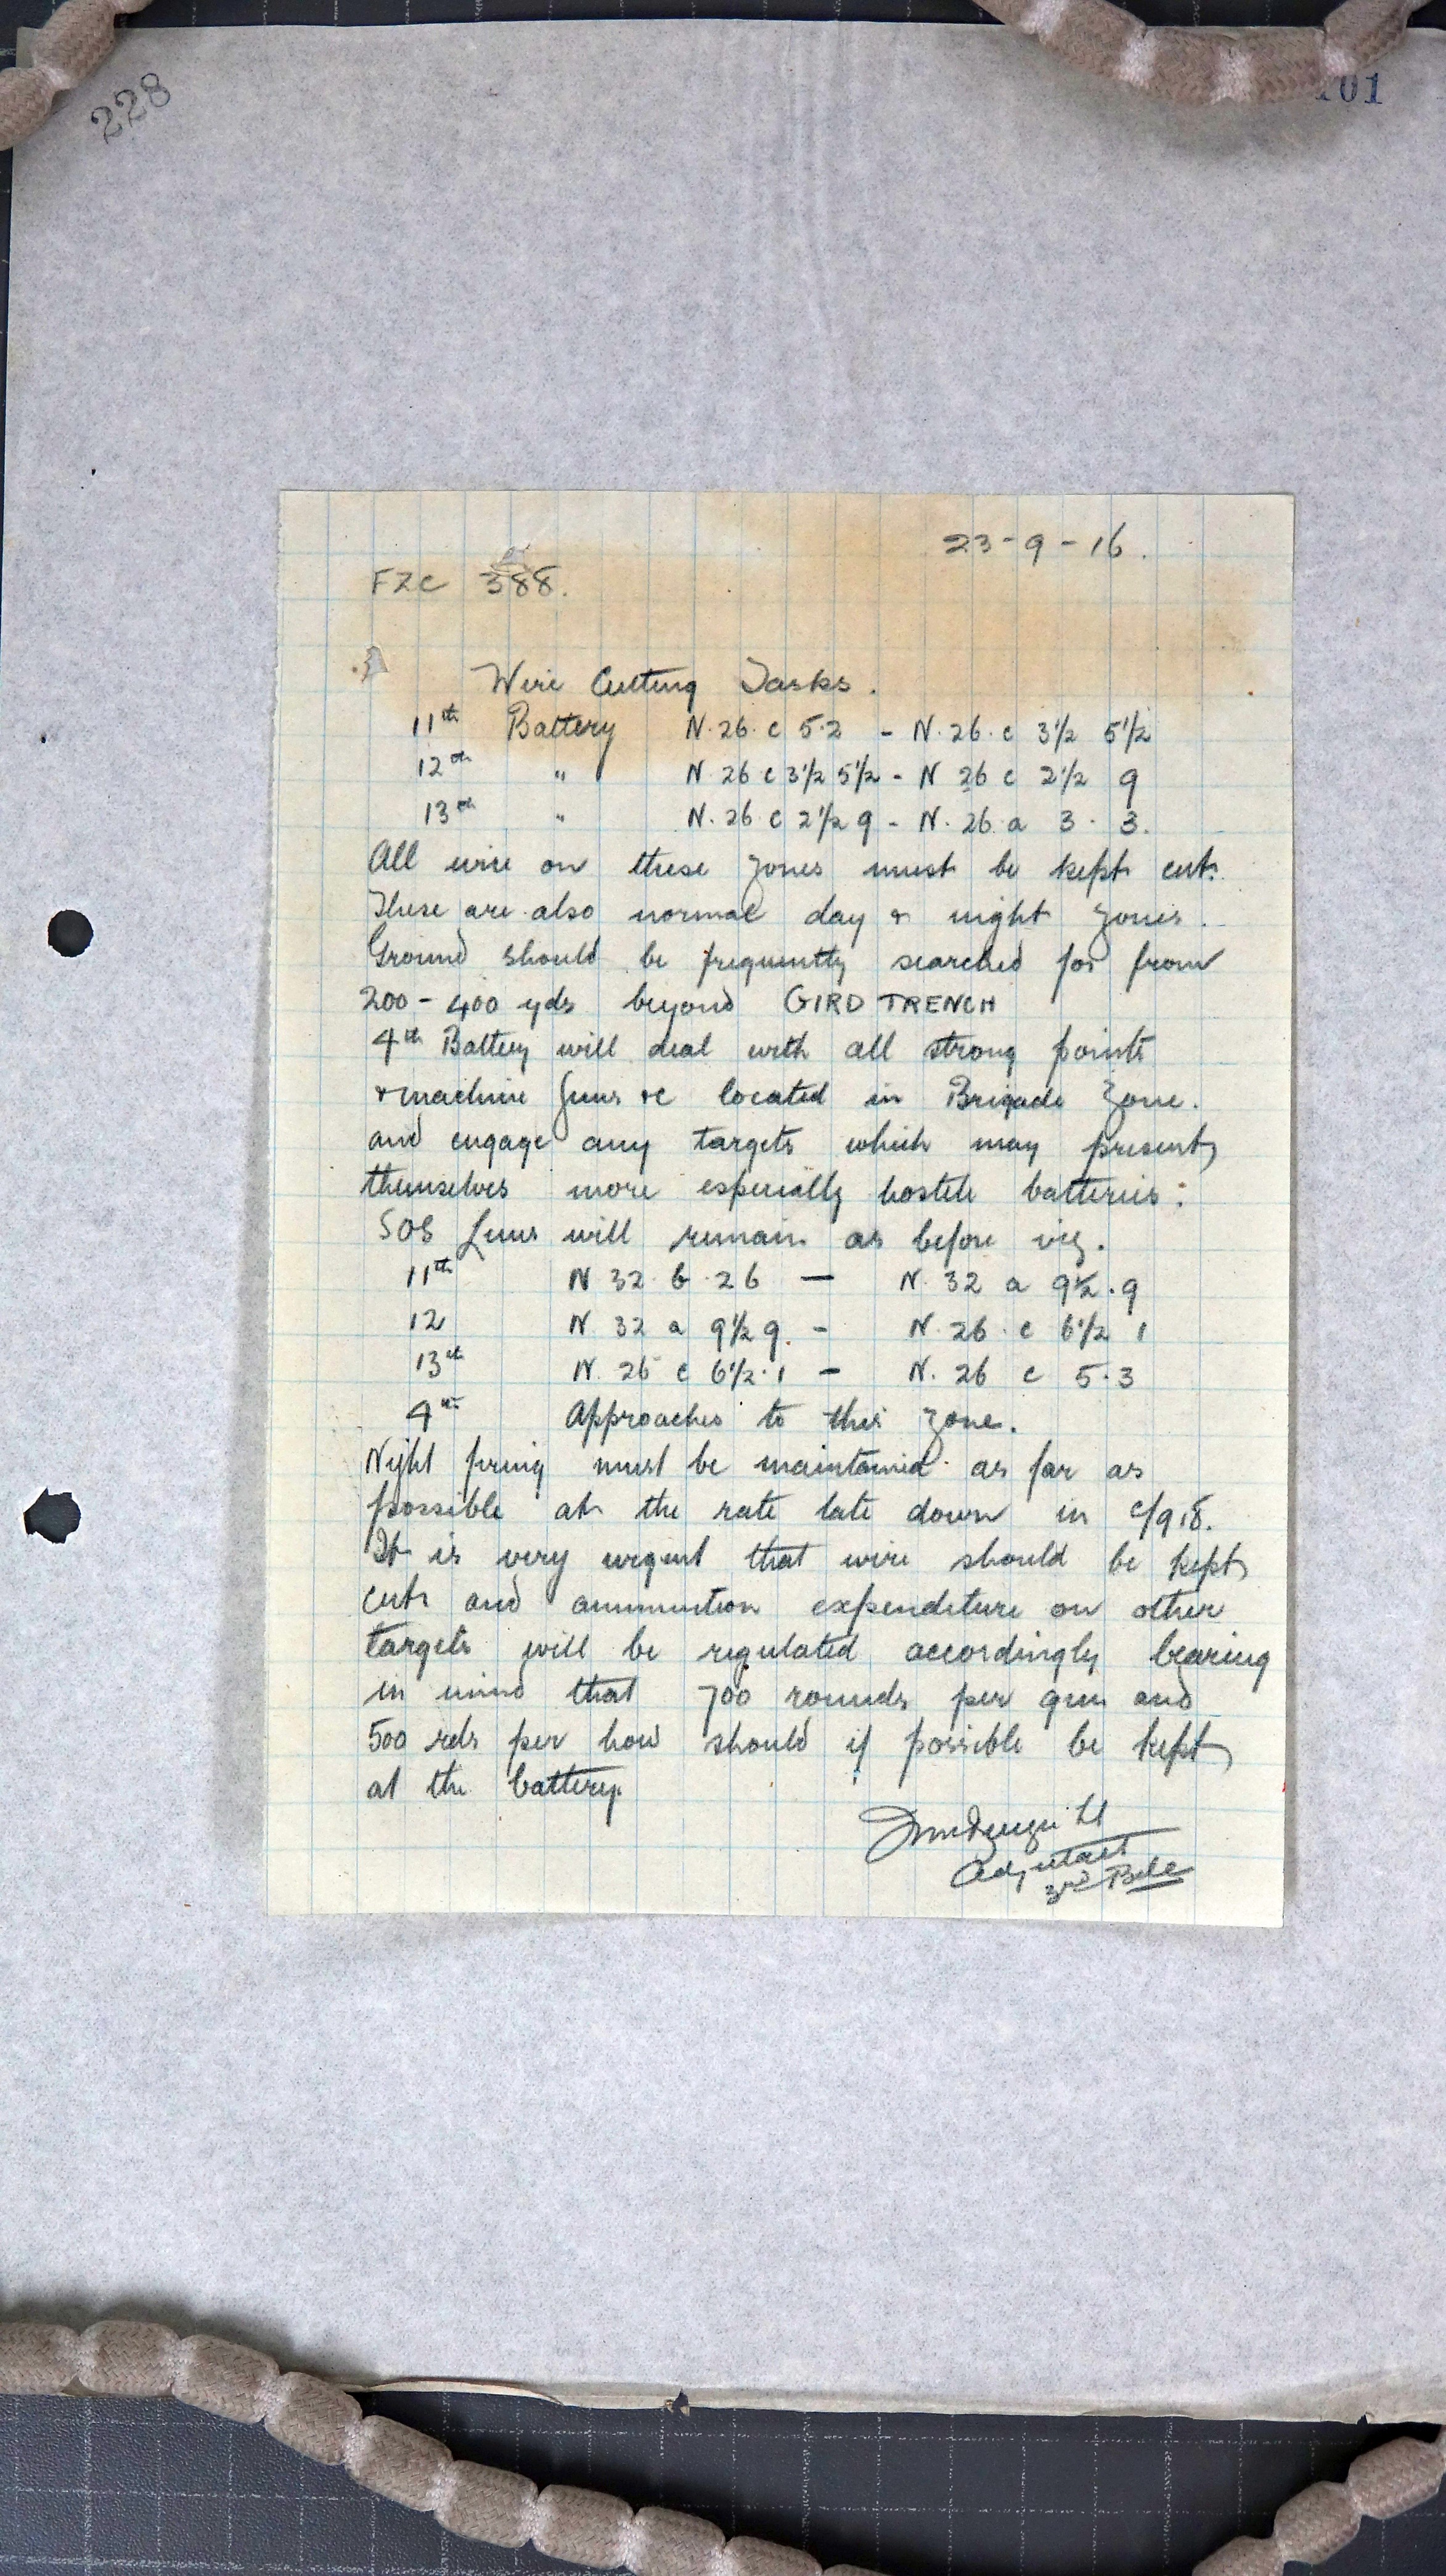 228
101
23-9-16.
FZC 388.
Wire Cutting Tasks.
11th Battery N.26.c 5.2 - N.26.c 3½ 5½
12th " N 26 c 3½ 5½ - N 26 c 2½ 9
13th " N.26.c 2½ 9 - N.26.a 3.3.
All wire on these zones must be kept cut.
These are also normal day & night zones.
Ground should be frequently searched for from
200-400 yds beyond GIRD TRENCH
4th Battery will deal with all strong points
& machine guns &c located in Brigade Zone.
and engage any targets which may present
themselves more especially hostile batteries:
SOS Lines will remain as before viz.
11th N 32 b.26 - N.32 a 9½.9
12 N.32 a 9½ 9. - N.26.c 6½ 1
13th N.26 c 6½.1 - N.26 c 5.3
4th Approaches to this zone.
Night firing must be maintained as far as
possible at the rate late down in
It is very urgent that wire should be kept
cut and ammunition expenditure on other
targets will be regulated accordingly bearing
in mind that 700 rounds per gun and
500 rds per how should if possible be kept
at the battery.
Lt
Adjutant
3rd Bde